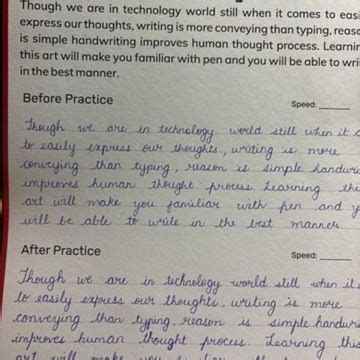 Though we are in technology world still when it comes to eas
express our thoughts, writing is more conveying than typing, reaso
is simple handwriting improves human thought process. Learnin
this art will make you familiar with pen and you will be able to wri
in the best manner.
Before Practice
Speed:
Though we are in technology world still when it c
to easily express our thoughts, writing is more
conveying than typing, reason is simple handwri
improves human thought process Learning thi
art will make you familiar with pen and y
will be able to write in the best manner
After Practice
Speed:
Though we are in technology world still when it
to easily express our thoughts, writing is more
conveying than typing, reason is simple handwri
improves human thought process. Learning this
art will make you